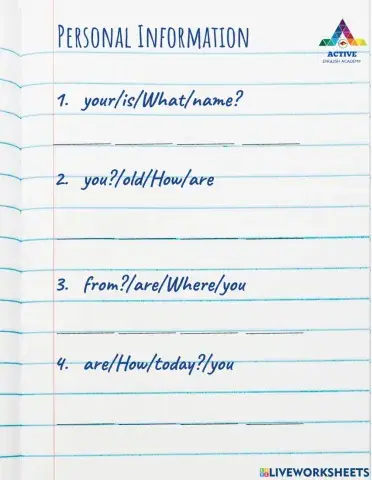 PERSONAL INFORMATION
ACTIVE
ENGLISH ACADEMY
1. your/is/What/name?
2. you?/old/How/are
3. from?/are/Where/you
4. are/How/today?/you
LIVEWORKSHEETS